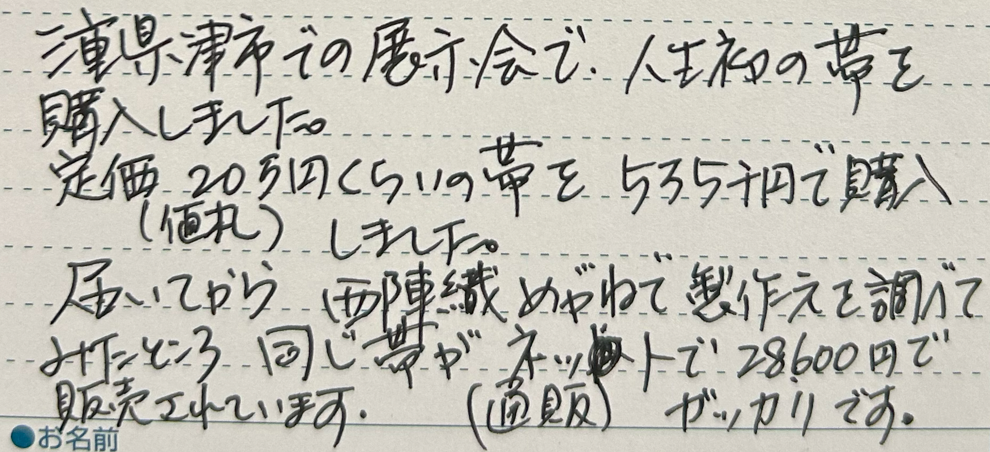 三重県津市での展示会で、人生初の帯を
購入しました。
定価20万円くらいの帯を5万5千円で購入
(値札) しました。
届いてから西陣織めがねで製作元を調べて
みたところ同じ帯がネットで28600円で
販売されています。(通販) ガッカリです。
●お名前